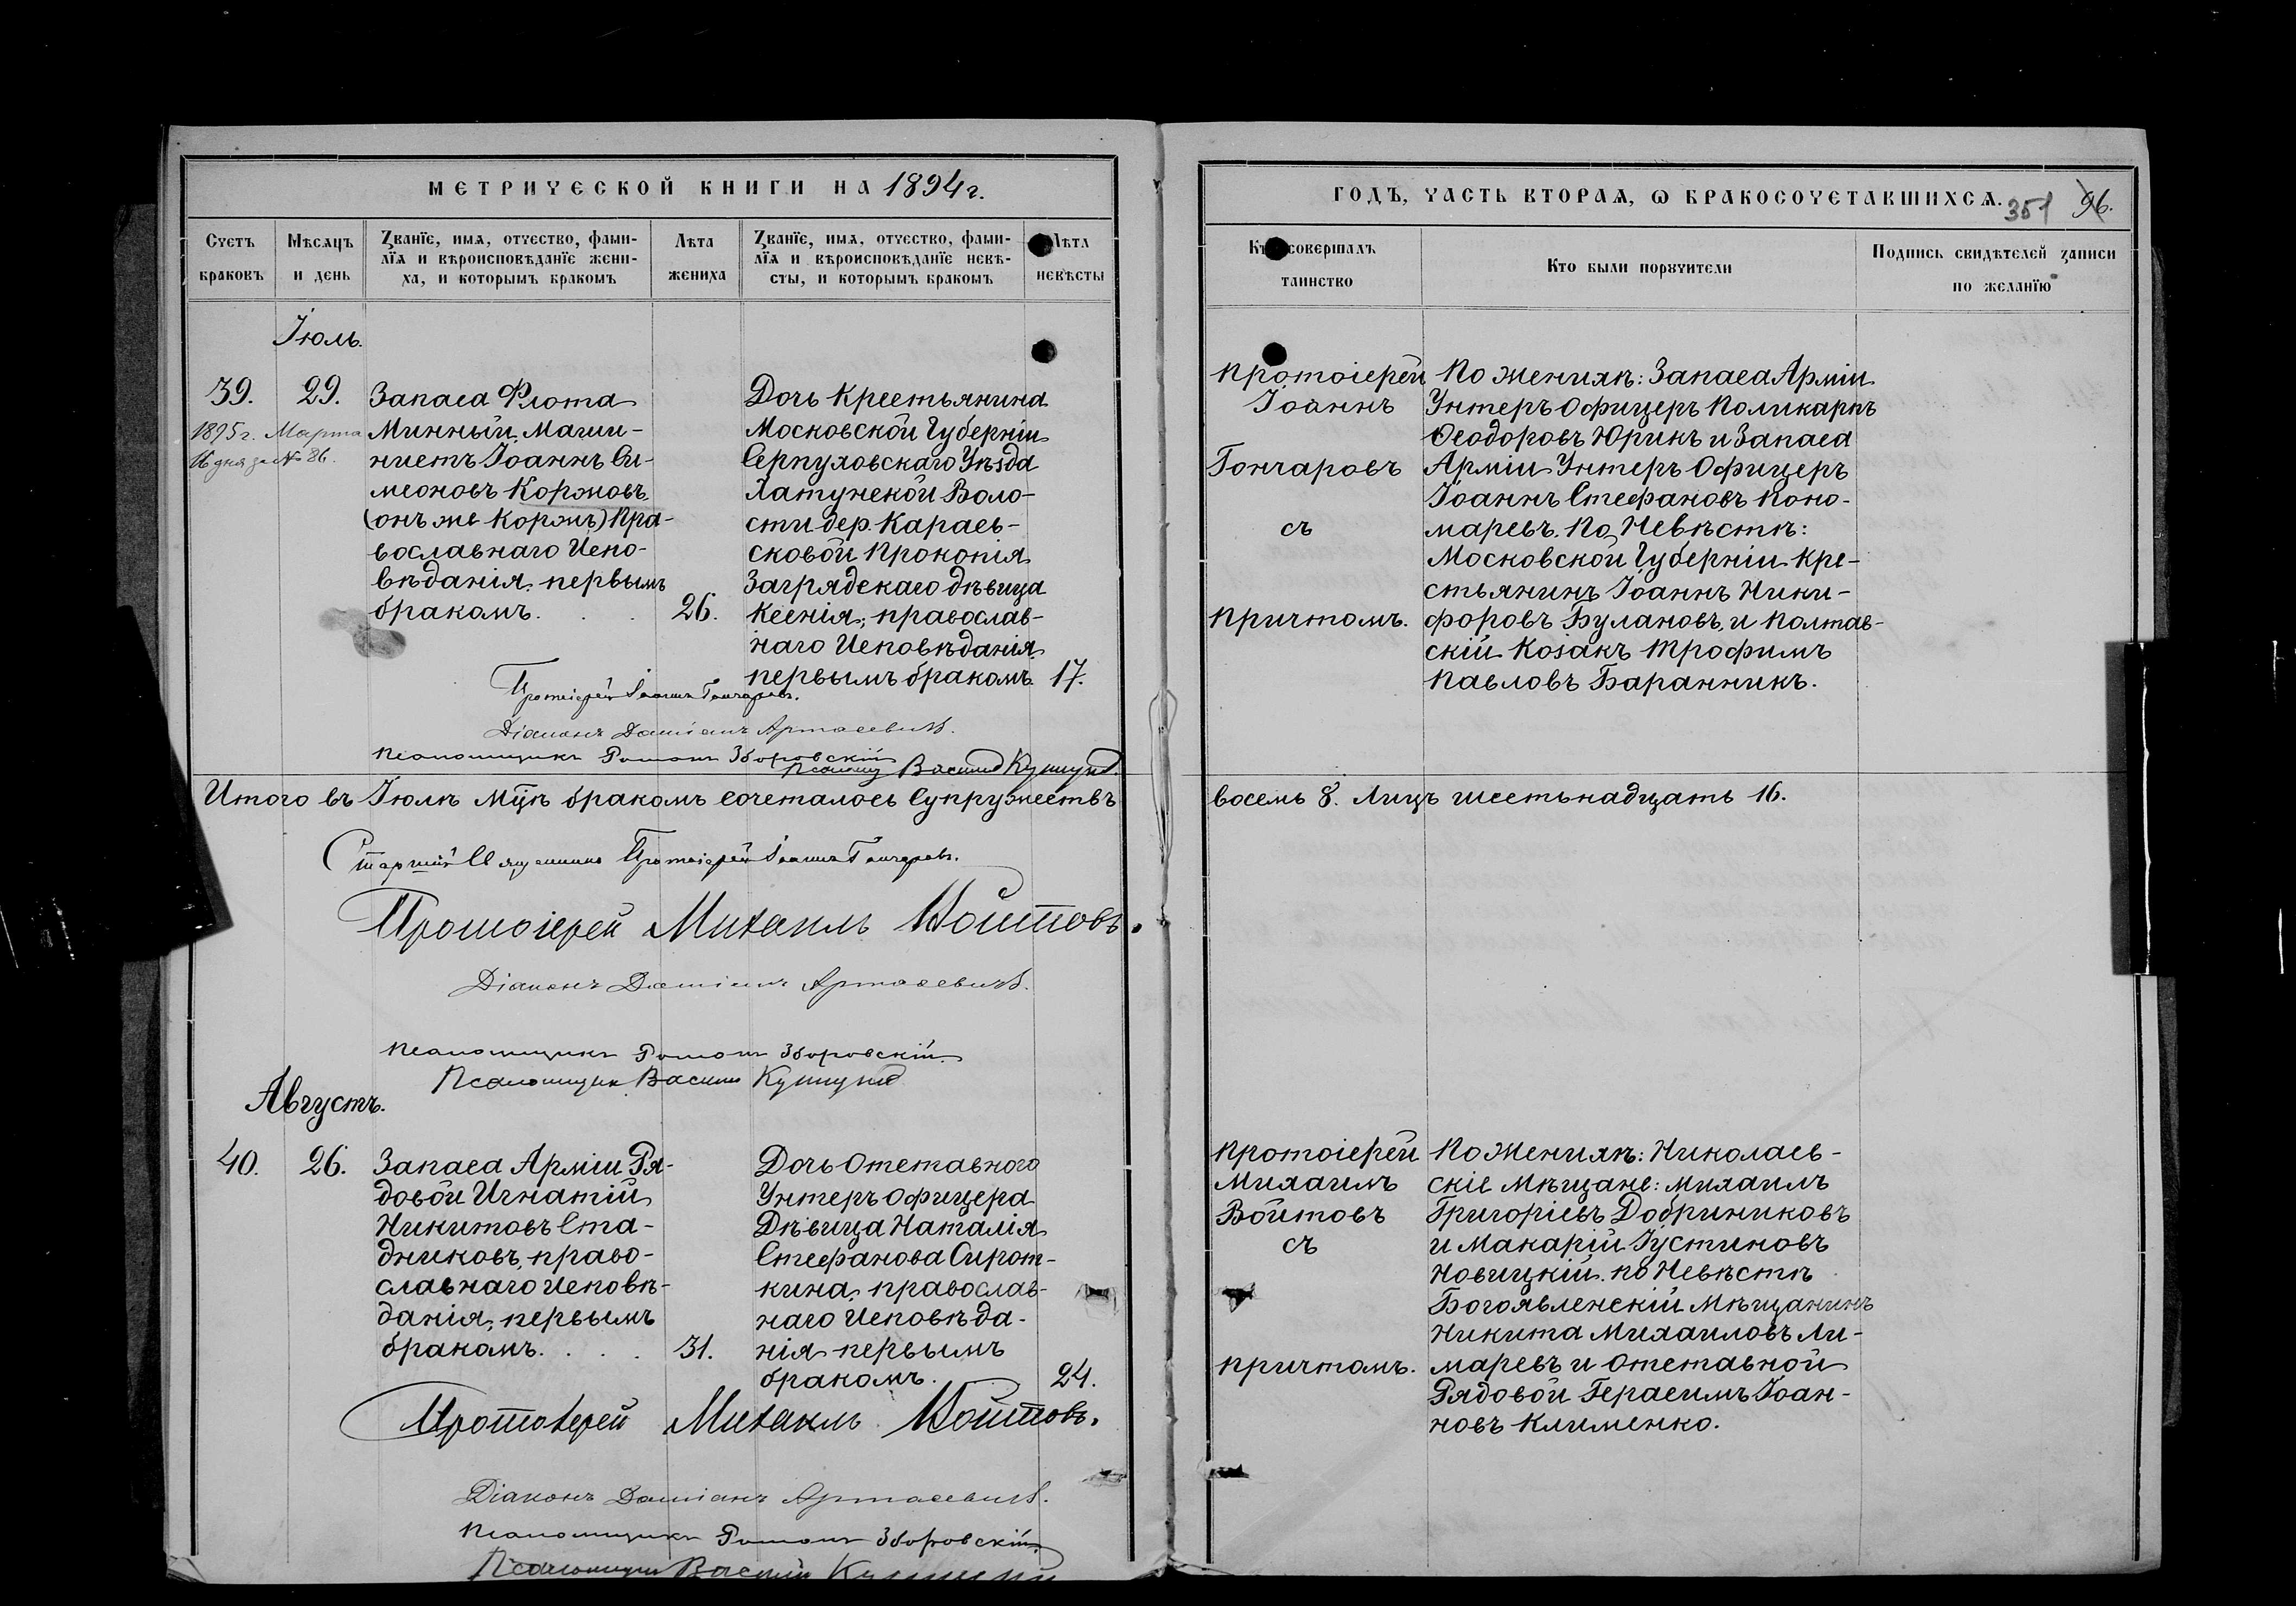 МЕТРИЧЕСКОЙ КНИГИ НА 1894 г.
Счетъ браковъ
Мѣсяцъ и день
Званїе, имя, отчество, фами-
лїя и вѣроисповѣданїе жени-
ха, и которымъ бракомъ
Лѣта жениха
Званїе, имя, отчество, фами-
лїя и вѣроисповѣданїе невѣ-
сты, и которымъ бракомъ
Лѣта невѣсты
Іюль.
39.
29.
1895 г. Марта
16 дня за № 86.
Запаса Флота
Минный Маши-
нистъ Іоаннъ Си-
меоновъ Коржовъ
(онъ же Коржъ) Пра-
вославнаго Испо-
вѣданія, первымъ
бракомъ. . . 26.
Дочь Крестьянина
Московской Губерніи
Серпуховскаго Уѣзда
Хатунской Воло-
сти дер. Карась-
сковой Прокопія
Загрядскаго дѣвица
Ксенія, православ-
наго Исповѣданія
первымъ бракомъ. 17.
Протоіерей Іоаннъ Гончаровъ.
Діаконъ Даміанъ Артасевичъ.
Псаломщикъ Романъ Зборовскій
Псаломщ Василій
Итого въ Іюлѣ Мцѣ бракомъ сочеталось Супружествъ
Старшій Священникъ Протоіерей Іоаннъ Гончаровъ.
Протоіерей Михаилъ Войтовъ.
Діаконъ Даміанъ Артасевичъ.
Псаломщикъ Романъ Зборовскій.
Псаломщикъ Василій
Августъ.
40.
26.
Запаса Арміи Ря-
довой Игнатій
Никитовъ Ста-
дниковъ, право-
славнаго исповѣ-
данія, первымъ
бракомъ. . . . 31.
Дочь Отставного
Унтеръ Офицера
Дѣвица Наталія
Стефанова Сирот-
кина, православ-
наго Исповѣда-
нія первымъ
бракомъ. 24.
Протоіерей Михаилъ Войтовъ.
Діаконъ Даміанъ Артасевичъ.
Псаломщикъ Романъ Зборовскій.
Псаломщикъ Василій
ГОДЪ, ЧАСТЬ ВТОРАЯ, Ѡ БРАКОСОЧЕТАВШИХСЯ.
351
96.
Кто совершалъ таинство
Кто были поручители
Подпись свидѣтелей записи по желанїю
Протоіерей
Іоаннъ
Гончаровъ
съ
причтомъ.
По женихѣ: Запаса Арміи
Унтеръ Офицеръ Поликарпъ
Ѳеодоровъ Юрикъ и Запаса
Арміи Унтеръ Офицеръ
Іоаннъ Стефановъ Коно-
маревъ. По Невѣстѣ:
Московской Губерніи Кре-
стьянинъ Іоаннъ Ники-
форовъ Булановъ, и Полтав-
скій Козакъ Трофимъ
Павловъ Баранникъ.
восемь 8. Лицъ шестьнадцать 16.
Протоіерей
Михаилъ
Войтовъ
съ
причтомъ.
По Женихѣ: Николаев-
скіе Мѣщане: Михаилъ
Григоріевъ Добриниковъ
и Макарій Іустиновъ
Новицкій. по Невѣстѣ
Богоявленскій Мѣщанинъ
Никита Михаиловъ Ли-
маревъ и Отставной
Рядовой Герасимъ Іоан-
новъ Клименко.